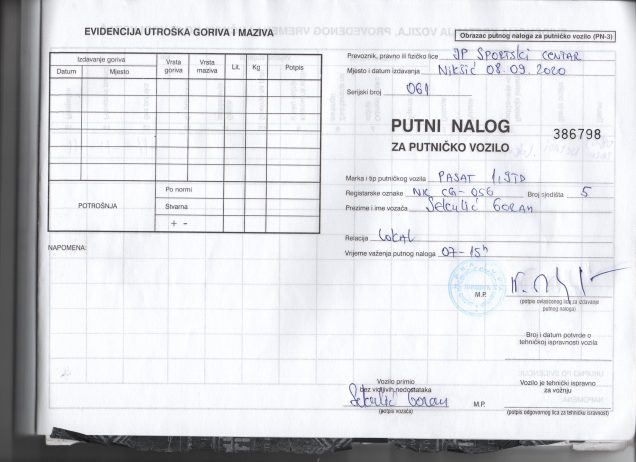 EVIDENCIJA UTROŠKA GORIVA I MAZIVA
Izdavanje goriva
Datum
Mjesto
Vrsta goriva
Vrsta maziva
Lit.
Kg
Potpis
POTROŠNJA
Po normi
Stvarna
+ -
NAPOMENA:
Obrazac putnog naloga za putničko vozilo (PN-3)
Prevoznik, pravno ili fizičko lice JP SPORTSKI CENTAR
Mjesto i datum izdavanja Nikšić 08.09.2020
Serijski broj 061
PUTNI NALOG
ZA PUTNIČKO VOZILO
386798
Marka i tip putničkog vozila PASAT 1,9TD
Registarske oznake NK CG-056 Broj sjedišta 5
Prezime i ime vozača Sekulić GORAN
Relacija LOKAL
Vrijeme važenja putnog naloga 07-15h
M.P.
(potpis ovlašćenog lica za izdavanje
putnog naloga)
Broj i datum potvrde o
tehničkoj ispravnosti vozila
Vozilo primio
bez vidljivih nedostataka
Sekulić Goran
(potpis vozača)
M.P.
Vozilo je tehnički ispravno
za vožnju
(potpis odgovornog lica za tehničku isravnost)